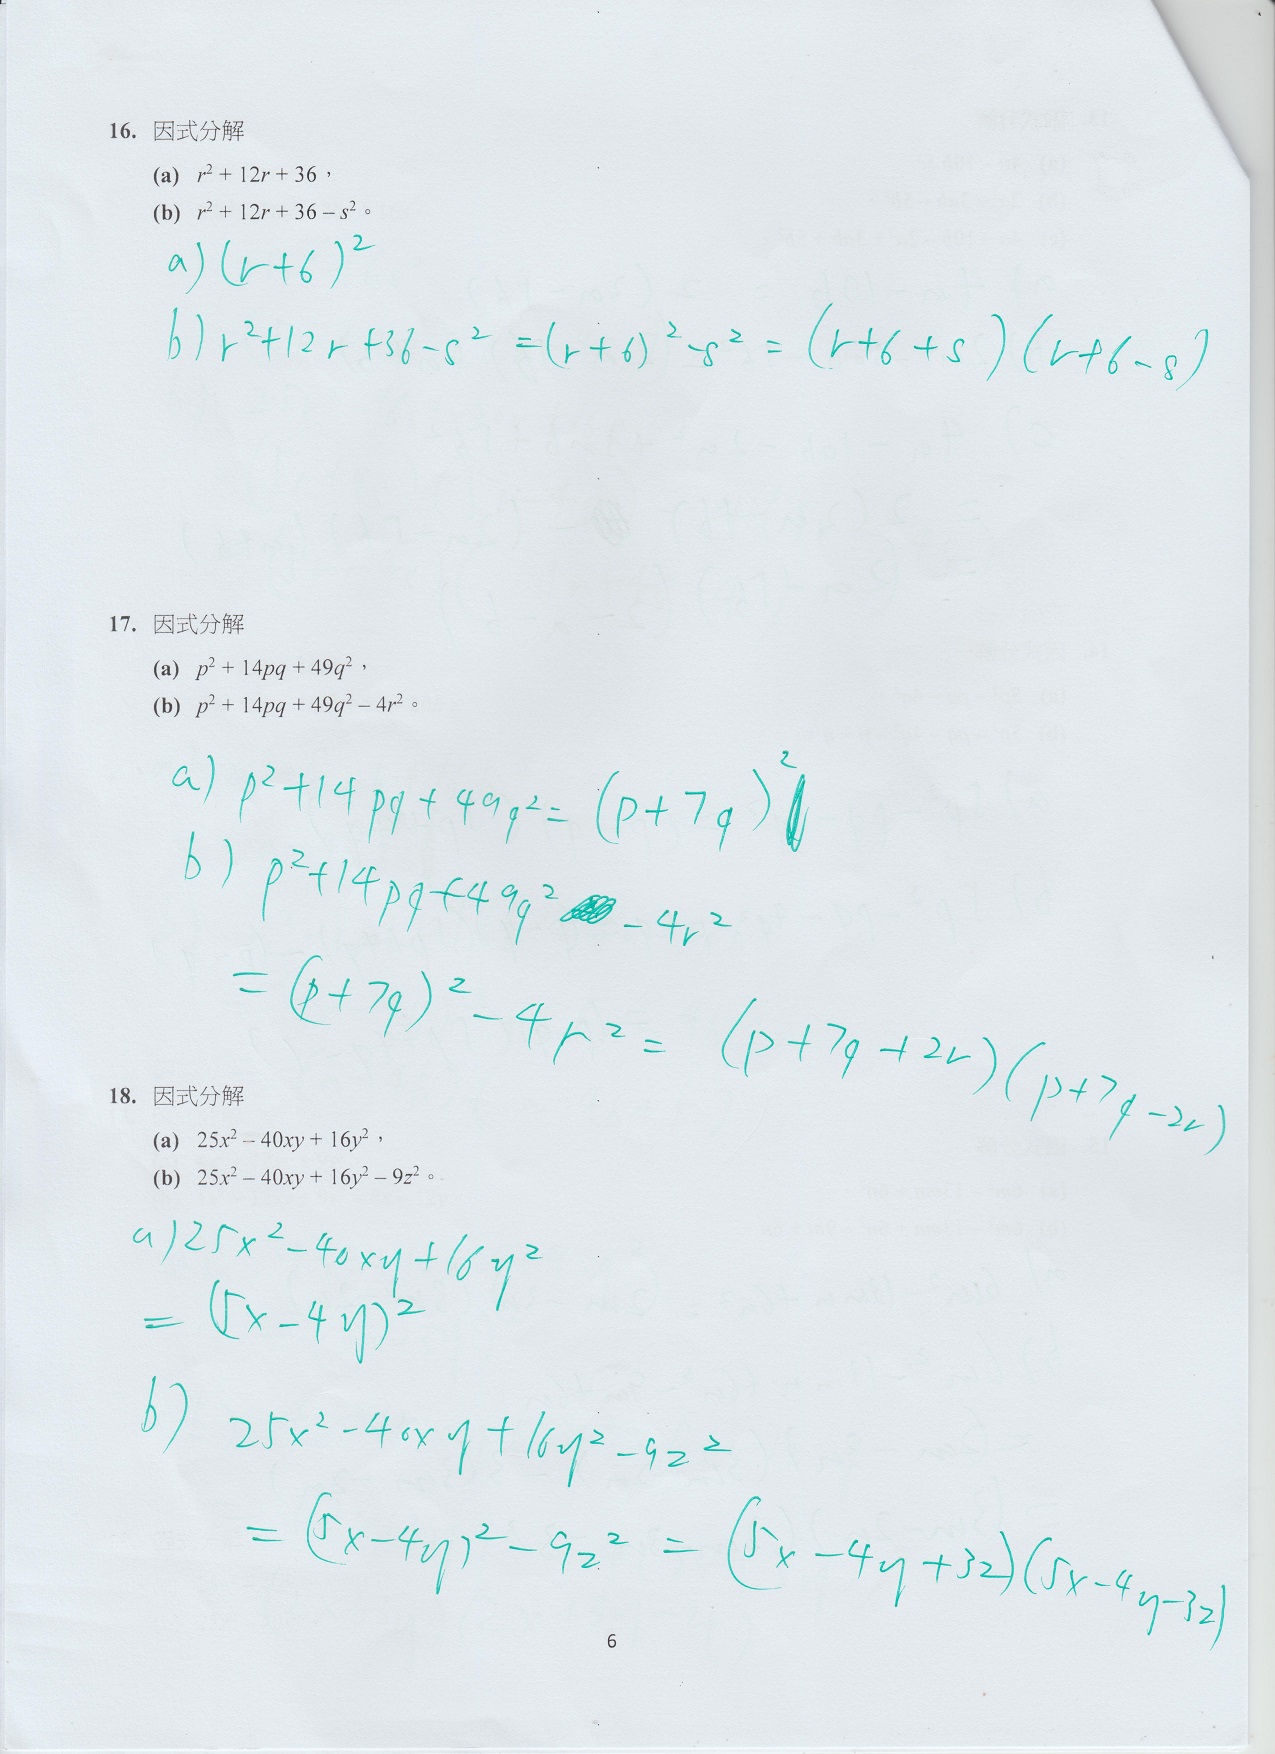 16. 因式分解
(a) r² + 12r + 36，
(b) r² + 12r + 36 – s²。
a) (r+6)²
b) r²+12r+36-s² =(r+6)²-s² = (r+6+s)(r+6-s)
17. 因式分解
(a) p² + 14pq + 49q²，
(b) p² + 14pq + 49q² – 4r²。
a) p²+14pq+49q²= (p+7q)²
b) p²+14pq+49q² -4r²
= (p+7q)²-4r² = (p+7q+2r)(p+7q-2r)
18. 因式分解
(a) 25x² – 40xy + 16y²，
(b) 25x² – 40xy + 16y² – 9z²。
a) 25x²-40xy+16y²
= (5x-4y)²
b) 25x²-40xy+16y²-9z²
= (5x-4y)²-9z² = (5x-4y+3z)(5x-4y-3z)
6